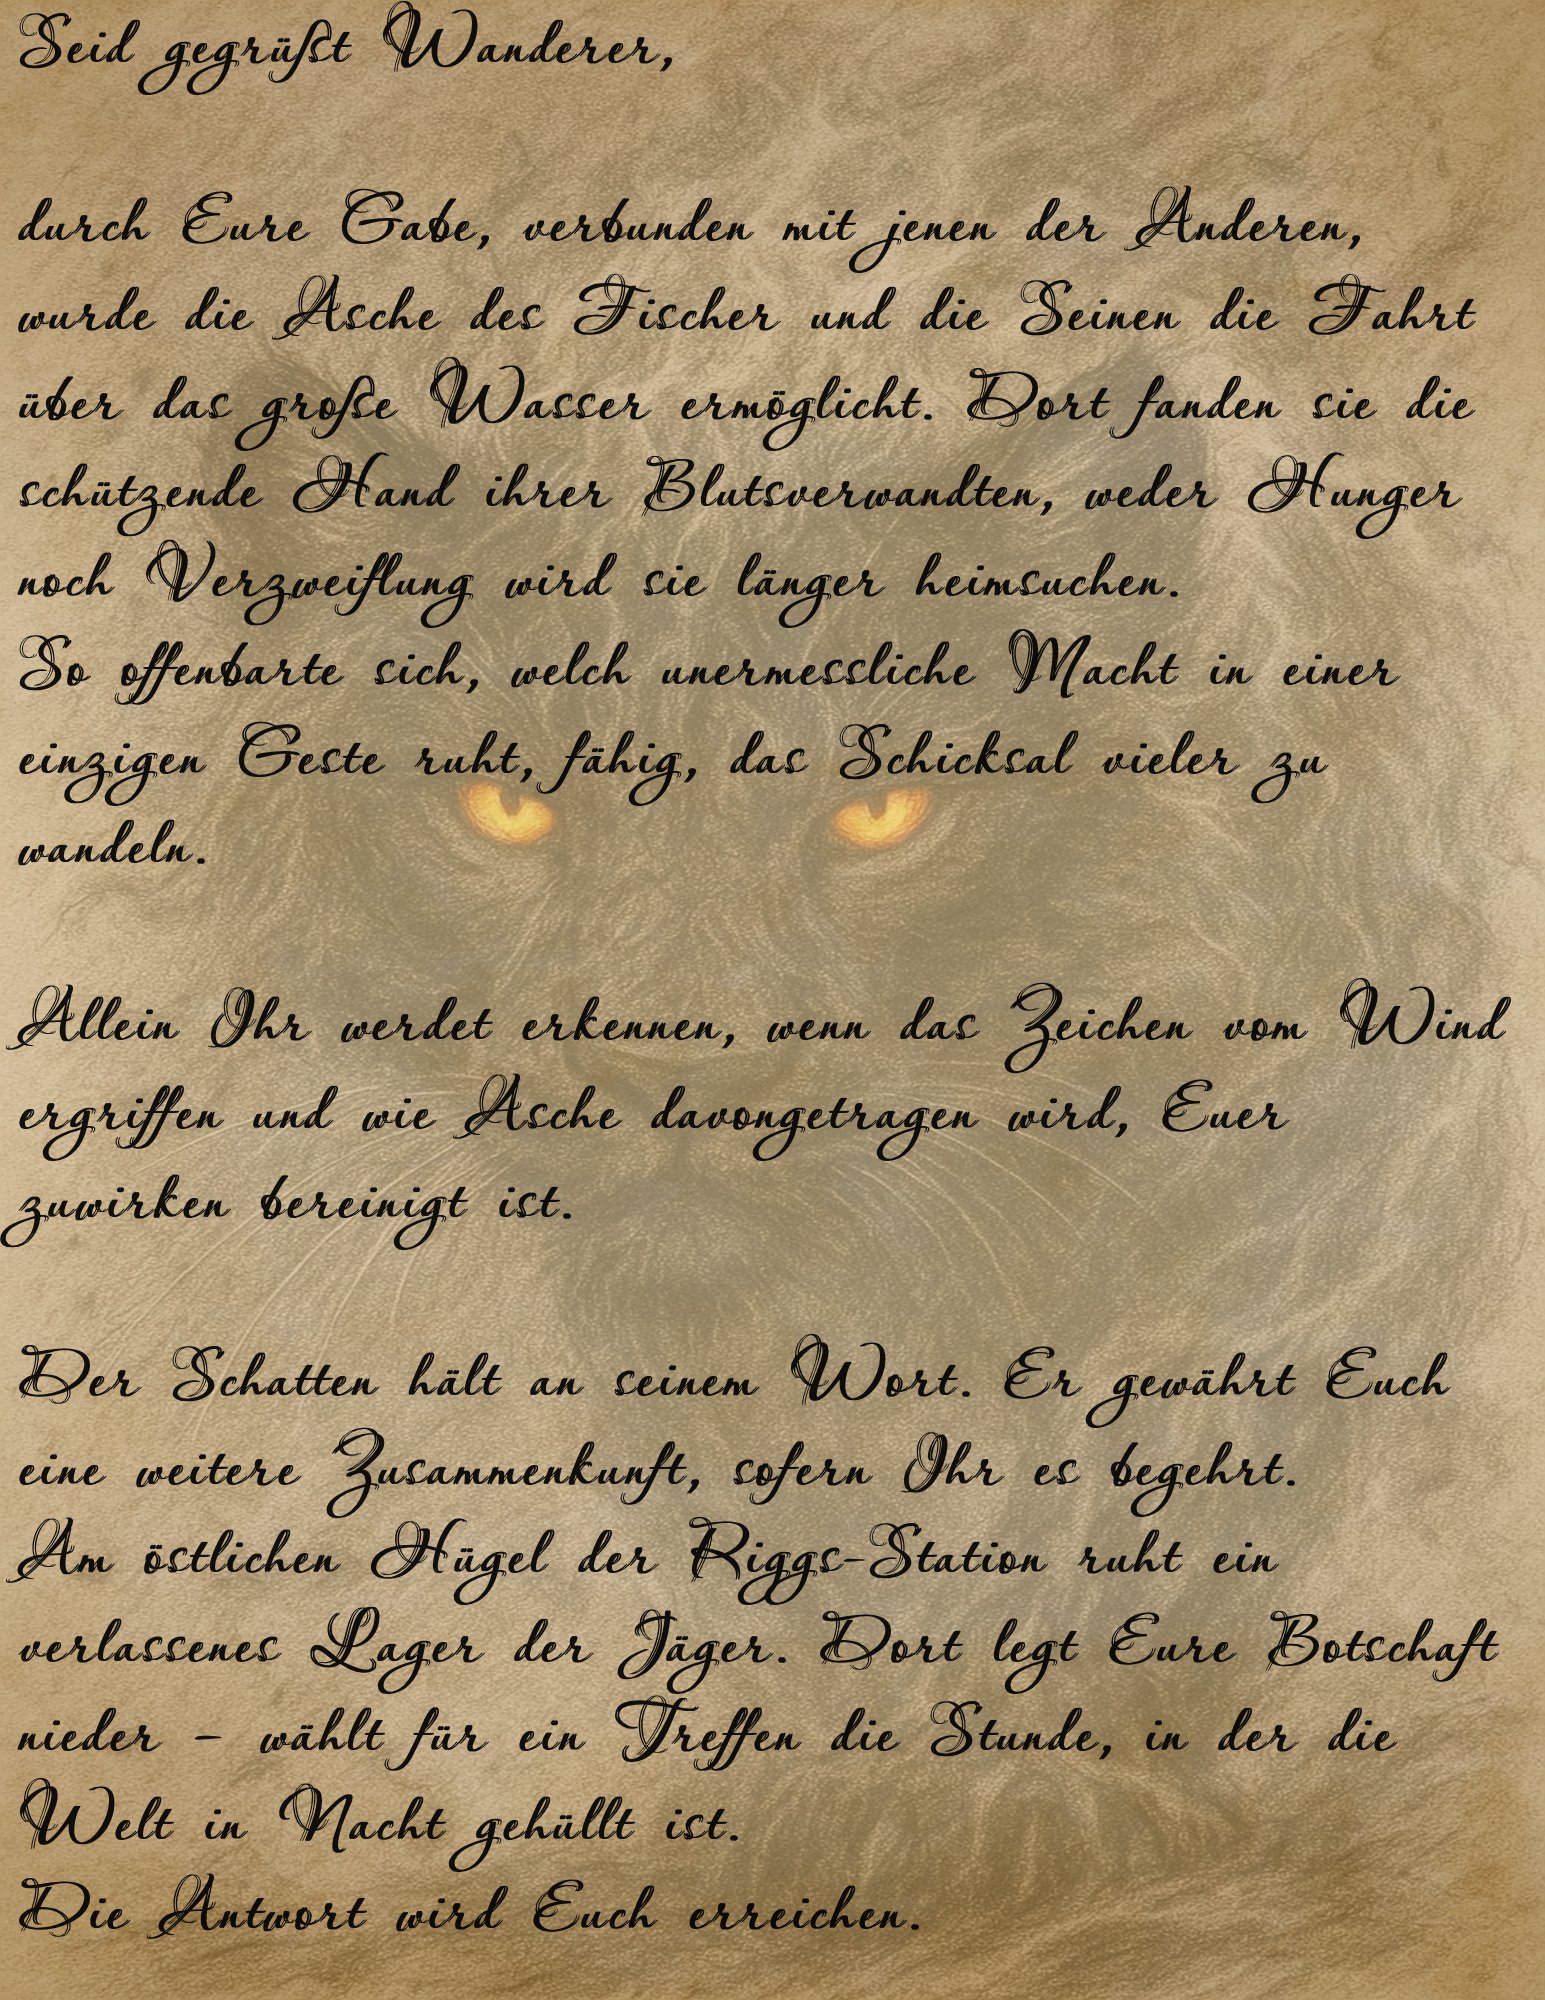 Seid gegrüßt Wanderer,
durch Eure Gabe, verbunden mit jenen der Anderen,
wurde die Asche des Fischer und die Seinen die Fahrt
über das große Wasser ermöglicht. Dort fanden sie die
schützende Hand ihrer Blutsverwandten, weder Hunger
noch Verzweiflung wird sie länger heimsuchen.
So offenbarte sich, welch unermessliche Macht in einer
einzigen Geste ruht, fähig, das Schicksal vieler zu
wandeln.
Allein Ihr werdet erkennen, wenn das Zeichen vom Wind
ergriffen und wie Asche davongetragen wird, Euer
zuwirken bereinigt ist.
Der Schatten hält an seinem Wort. Er gewährt Euch
eine weitere Zusammenkunft, sofern Ihr es begehrt.
Am östlichen Hügel der Riggs-Station ruht ein
verlassenes Lager der Jäger. Dort legt Eure Botschaft
nieder – wählt für ein Treffen die Stunde, in der die
Welt in Nacht gehüllt ist.
Die Antwort wird Euch erreichen.